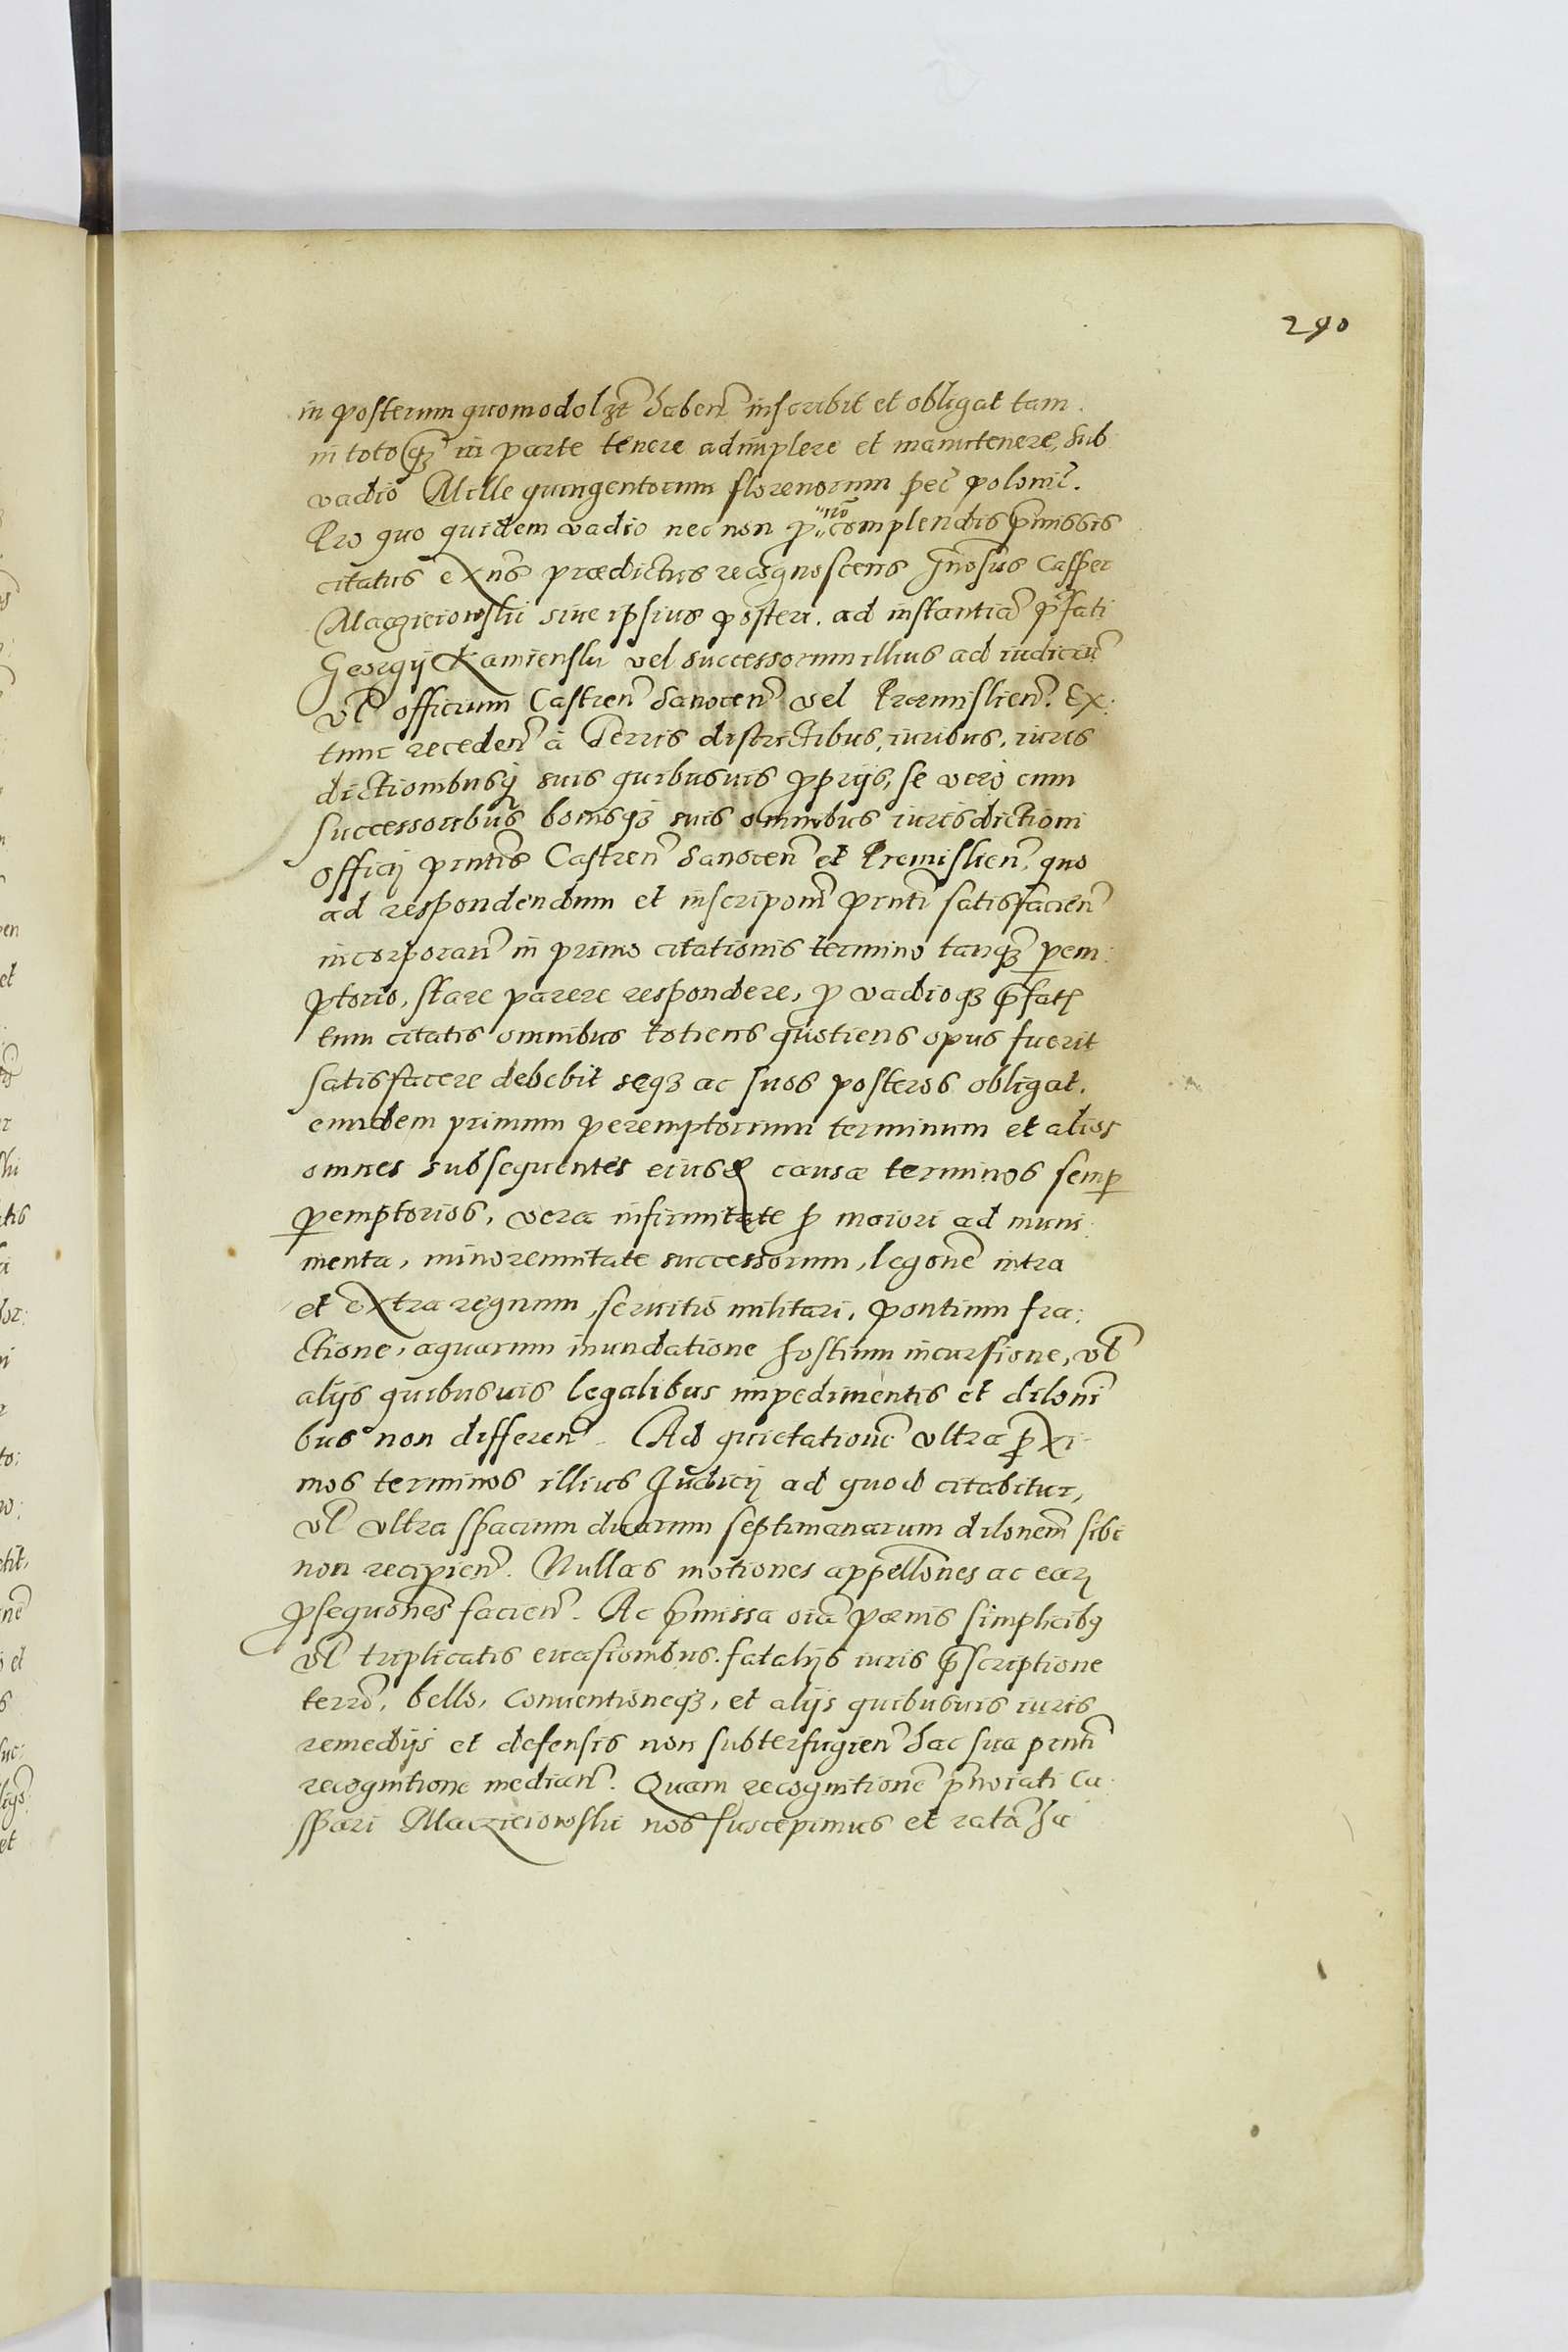 290
in posterum quomodolʒt haben̄ inscribit et obligat tam
in toto qʒ in parte tenere adimplere et manutenere, sub
vadio Mille quingentorum florenorum pec̄ poloni͠c.
Pro quo quidem vadio nec non p "no͞" complendis p̄missis
citatus exn̄s prædictus recognoscens Gn̄osus Casper
Maczieiowskii siue ipsius posteri. ad instantia͞ p̄fati
Georgij Kamienski vel successorum illius ad iudiciu͞
vl̄ officium Castren̄ Sanocen̄ vel Præmislien̄. Ex:
tunc receden̄ à Terris districtibus, iuribus, iuris
dictionibusq suis quibusuis p̱prijs, se vero cum
successoribus bonisqʒ suis omnibus iurisdictioni
Officij pn̄tis Castren̄ Sanocen̄ et Premislien̄, quo
ad respondendum et inscripom̄ pn̄ti satisfacien̄
incorporan̄ in primo citationis termino tanqʒ pem:
ptorio, stare parere respondere, p vadioqʒ p̄fatꝭ
tum citatis omnibus totiens quotiens opus fuerit
satisfacere debebit seqʒ ac suos posteros obligat.
eundem primum peremptorium terminum et alios
omnes subsequentes eiusd̄ causæ terminos semp̱
p̱emptorios, vera infirmitate p maiori ad muni:
menta, minorennitate successorum, legone͞ intra
et extra regnum, seruitio militari, pontium fra:
ctione, aquarum inundatione hostium incursione, vl̄
alijs quibusuis legalibus impedimentis et diloni͞
bus non differen̄. Ad quietatione͞ vltra p̱xi
mos terminos illius Judicij ad quod citabitur,
vl̄ vltra spacium duarum septimanarum dilonem̄ sibi
non recipien̄. Nullas motiones appellones̄ ac earꝝ
p̱sequones̄ facien̄. Ac p̄missa oia͞ pœnis simplicibꝰ
vl̄ triplicatis euasionibus. fatalijs iuris p̄scriptione
terro͞, bello, conuentioneqʒ, et alijs quibusuis iuris
remedijs et defensis non subterfugien̄ hac sua pn̄ti
recognitione median̄. Quam recognitione͞ p̄norati Ca:
spari Maczieiowskii nos suscepimus et rata͞ ha